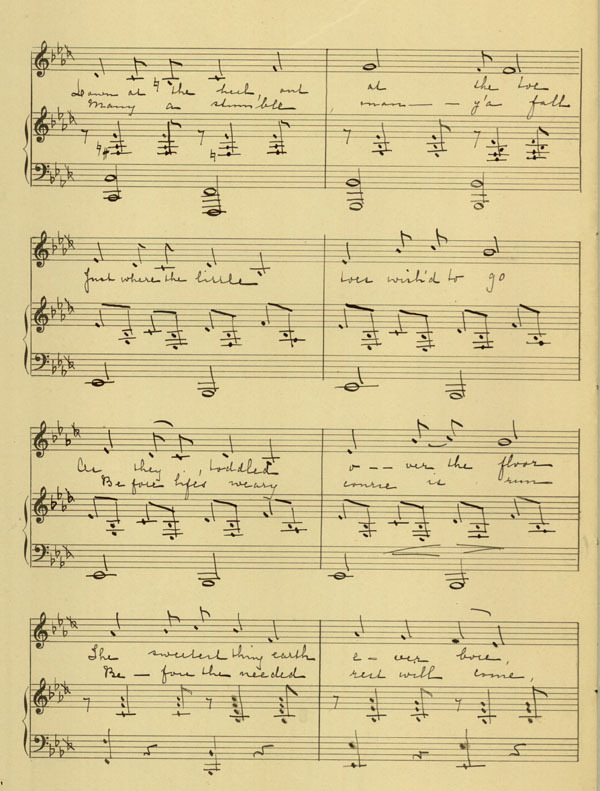 Down at the heel, out at the toe
Many a stumble, man — — y a fall
Just where the little toes wish'd to go
As they, toddled o — — ver the floor
Before life's weary course is run
The sweetest thing earth e — ver bore,
Be — fore the needed rest will come,